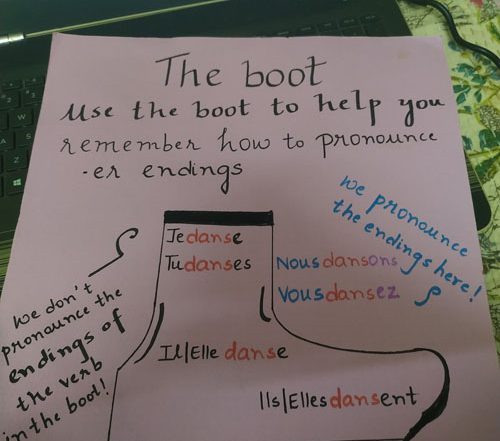 The boot
Use the boot to help you
remember how to pronounce
-er endings
we pronounce
the endings here!
Je danse
Tu danses
Nous dansons
Vous dansez
we don't
pronounce the
endings of
the verb
in the boot!
Il/Elle danse
Ils/Elles dansent